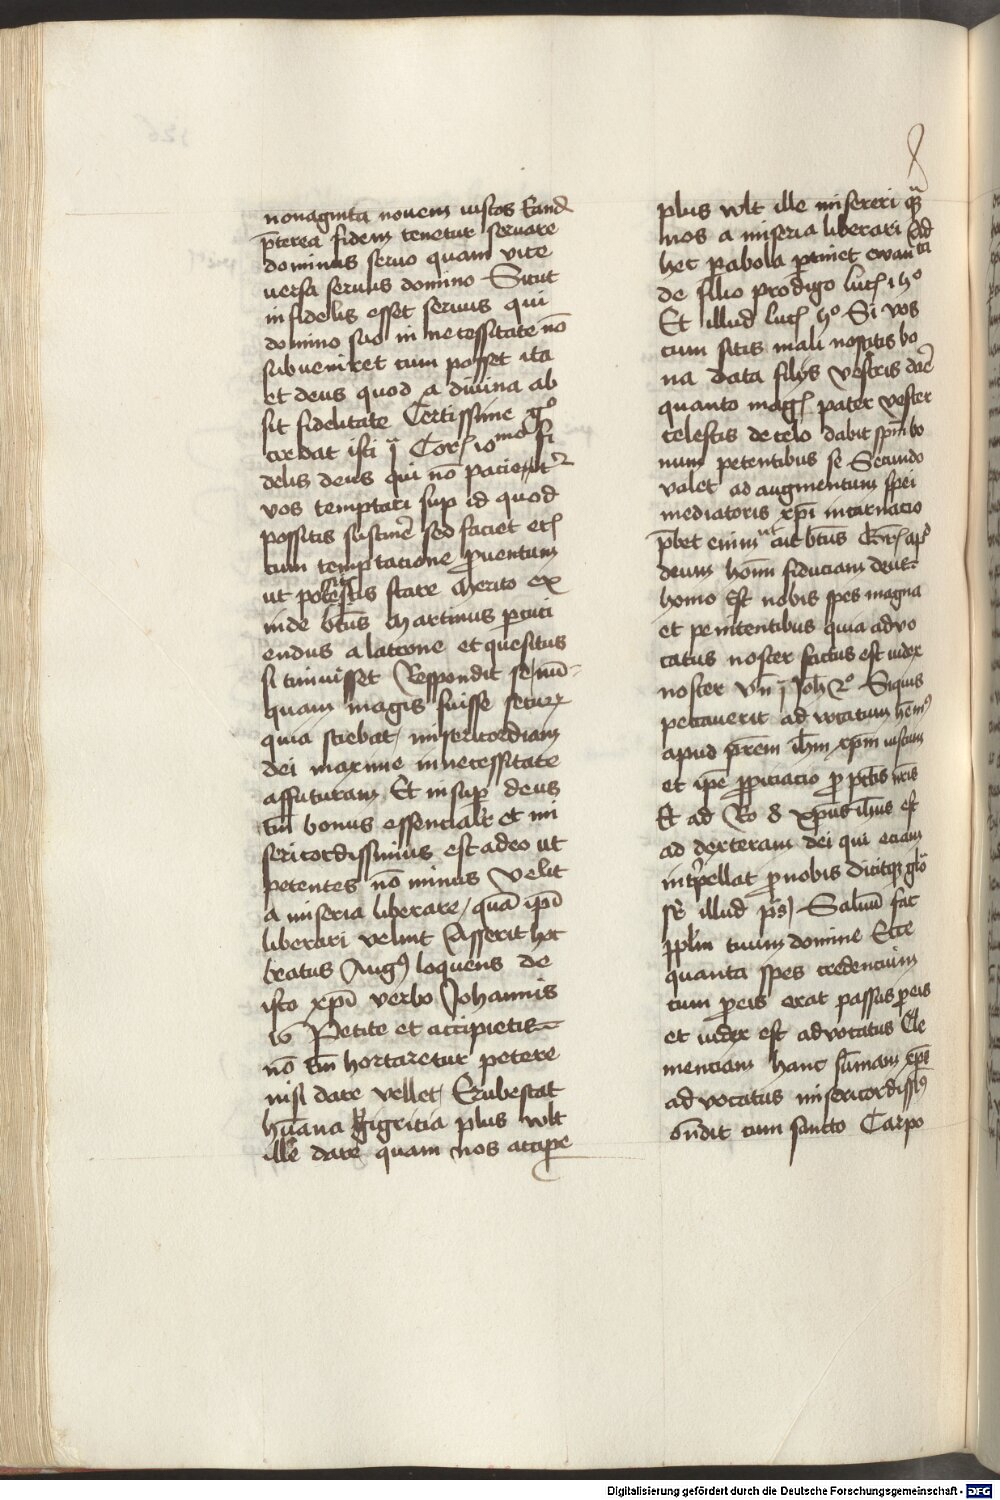 nonaginta novem iustos Eand
p̄terea fidem tenetur servare
dominus servo quam vice
versa servus domino Sicut
infidelis esset servus qui
domino suo in necessitate nō
subveniret cum posset ita
et deus quod a divina ab
sit fidelitate Certissime gͦ
credat isti Coꝝ 10mo fi
delis deus qui nō pacietᷣ
vos temptari sup id quod
possitis sustinē sed faciet etꝫ
cum temptacione ꝓventum
ut potestis stare Merito ex
inde btūs Martinus ꝑcuci
endus a latrone et quesitus
si timuisset Respondit se nū
quam magis fuisse secuꝝ
quia sciebat misericordiam
dei maxime in necessitate
affuturam Et insuꝑ deus
tm̄ bonus essencialit et mi
sericordissimus est adeo ut
petentes nō minus velit
a miseria liberare quā ip̄i
liberari velint Asserit hec
beatus Augꝰ loquens de
isto xp̄i verbo Johannis
16 Petite et accipietis
nō tm̄ hortaretur petere
nisi dare vellet Erubescat
hūana pigricia plus vult
ille dare quam nos accipe
plus vult ille misereri qᷓꝫ
nos a miseria liberari Ad
hec pabola ꝑtinet ewan
de filio prodigo lucꝫ 15o
Et illud lucꝫ Si vos
cum sitis mali nostis bo
na data filijs vestris daē
quanto magꝫ pater vester
celestis de celo dabit spm̄ bo
num petentibus se Secundo
valet ad augmentum spei
mediatoris xp̄i incarnacio
p̄bet enim ut ait btūs
deum hoīm fiduciam deus
homo Est nobis spes magna
et penitentibus quia advo
catus noster factus est iudex
noster Vn̄ j Joh 2o Siquis
peccaverit advocatum hēmꝰ
apud p̄rem ih̄m xp̄m iustum
et ip̄e ꝓpiciacio ꝓ pctīs nr̄is
Et ad Ro 8 xp̄us ih̄us est
ad dexteram dei qui eciam
interpellat ꝓ nobis dicitqꝫ glo
sᵉ illud ps̄ Salvū fac
ppl̄m tuum domine Ecce
quanta spes credencium
cum ꝑ eis erat passus ꝑ eis
et iudex est advocatus Cle
menciam hanc sūmam xp̄s
advocatus misericordissiꝰ
on̄dit cum sancto Carpo